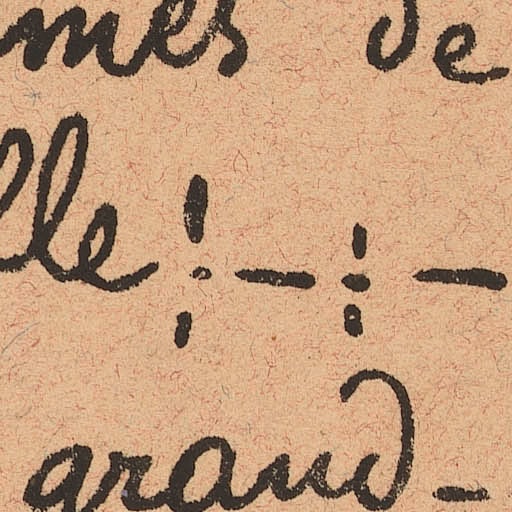 mes de
lle ! - : -
grand-